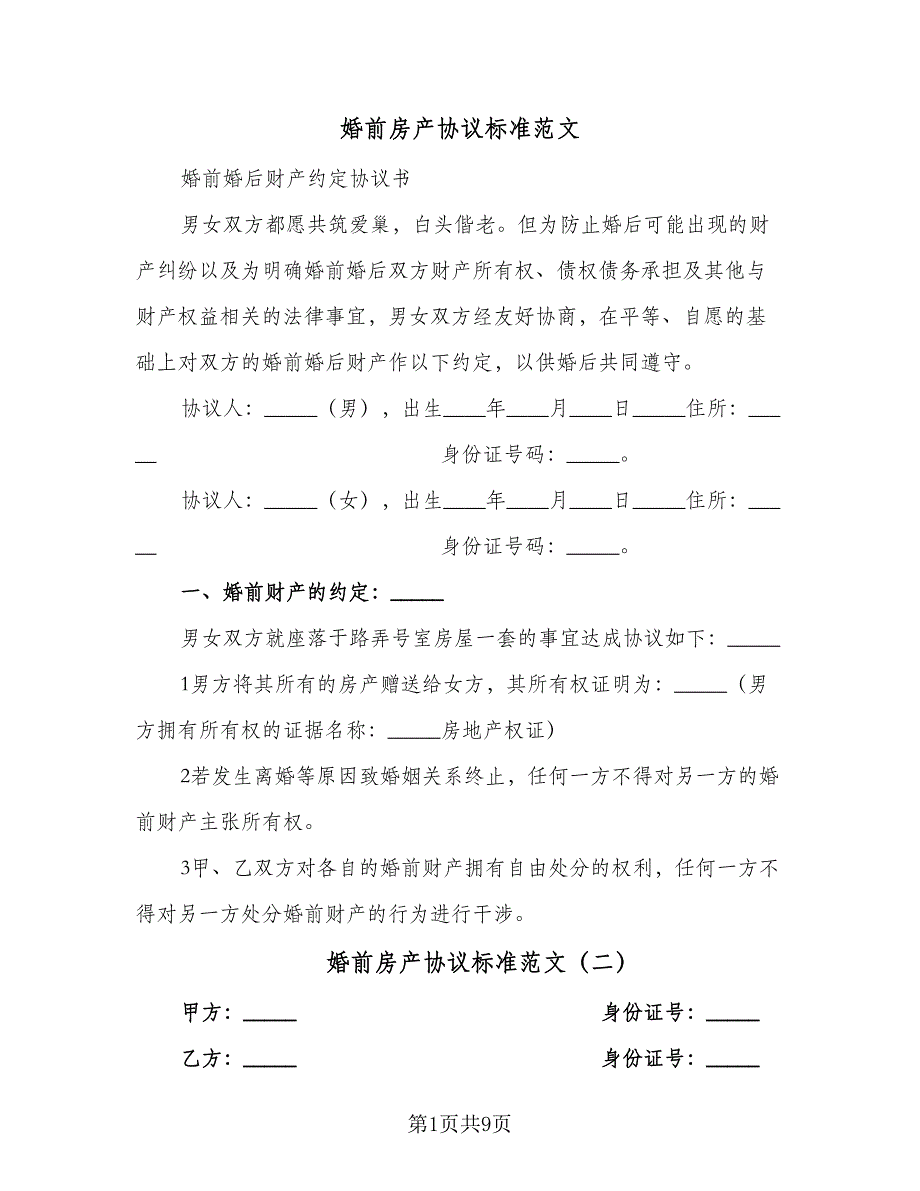 婚前房产协议标准范文
婚前婚后财产约定协议书
男女双方都愿共筑爱巢，白头偕老。但为防止婚后可能出现的财
产纠纷以及为明确婚前婚后双方财产所有权、债权债务承担及其他与
财产权益相关的法律事宜，男女双方经友好协商，在平等、自愿的基
础上对双方的婚前婚后财产作以下约定，以供婚后共同遵守。
协议人：_____（男），出生____年____月____日_____住所：___
__ 身份证号码：_____。
协议人：_____（女），出生____年____月____日_____住所：___
__ 身份证号码：_____。
一、婚前财产的约定：_____
男女双方就座落于路弄号室房屋一套的事宜达成协议如下：_____
1男方将其所有的房产赠送给女方，其所有权证明为：_____（男
方拥有所有权的证据名称：_____房地产权证）
2若发生离婚等原因致婚姻关系终止，任何一方不得对另一方的婚
前财产主张所有权。
3甲、乙双方对各自的婚前财产拥有自由处分的权利，任何一方不
得对另一方处分婚前财产的行为进行干涉。
婚前房产协议标准范文（二）
甲方：_____ 身份证号：_____
乙方：_____ 身份证号：_____
第1页共9页